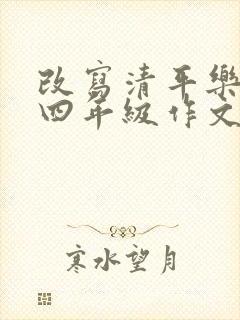 改寫清平樂
四年級作文
寒水望月